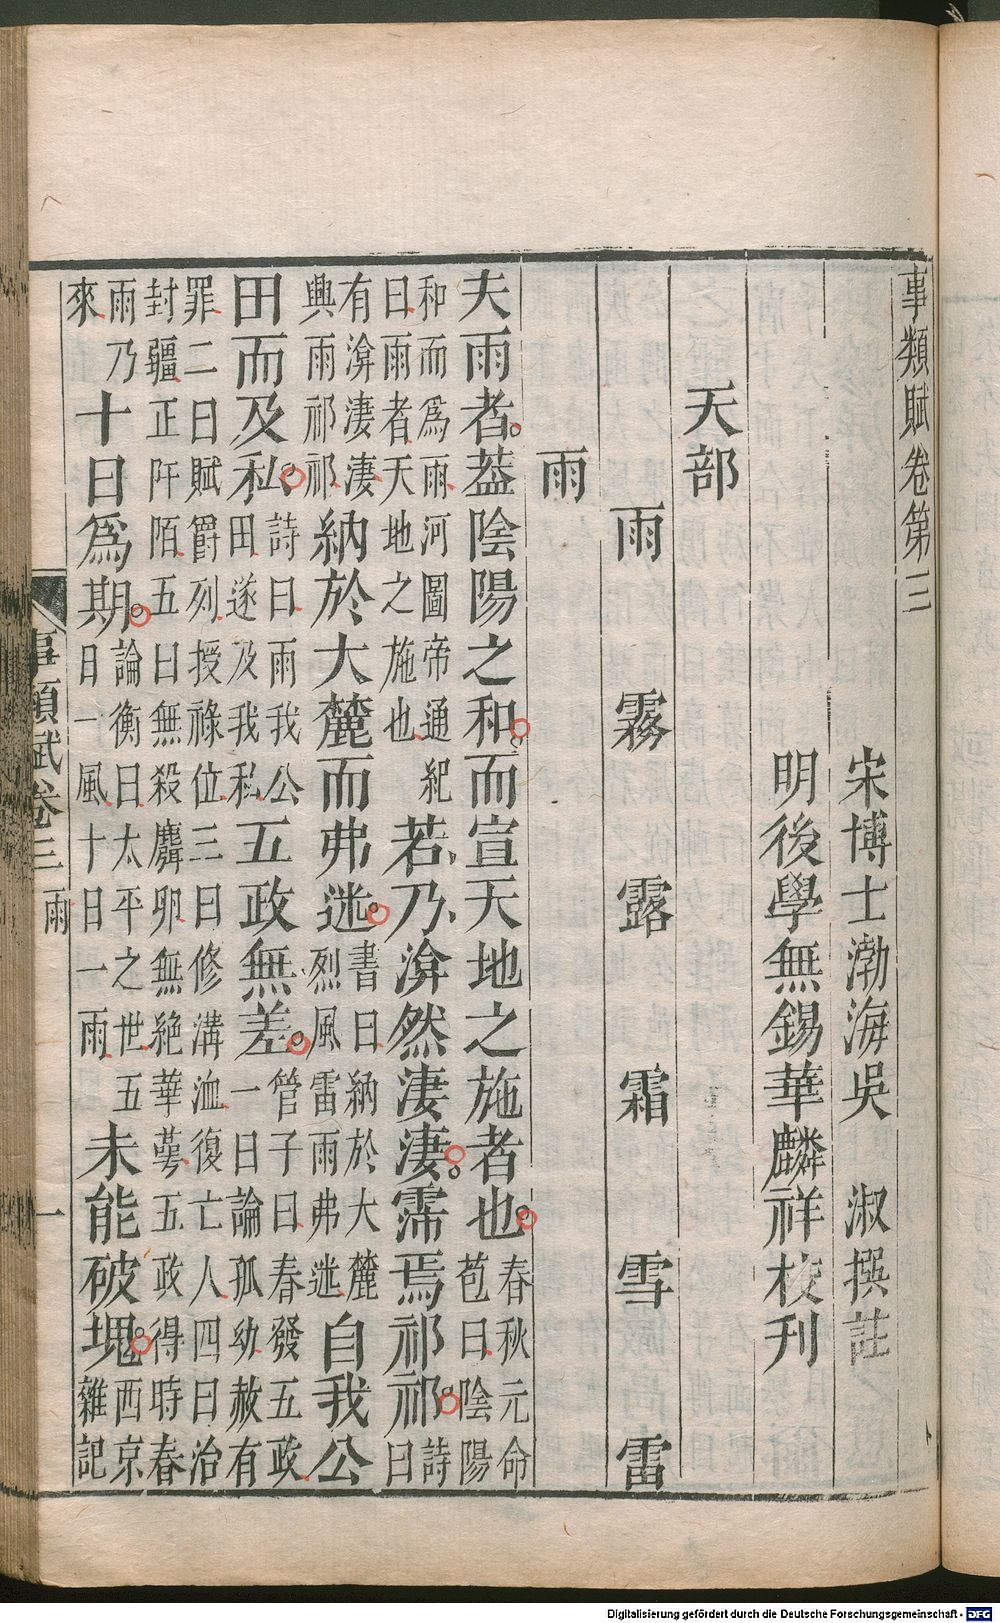 事類賦卷第三
宋博士渤海吳　淑撰註
明後學無錫華麟祥校刊
天部
雨　霧　露　霜　雪　雷
雨
夫雨者葢陰陽之和而宣天地之施者也春秋元命苞曰陰陽
和而爲雨河圖帝通紀曰雨者天地之施也若乃渰然淒淒霈焉祁祁詩曰
有渰淒淒興雨祁祁納於大麓而弗迷書曰納於大麓烈風雷雨弗迷自我公
田而及私詩曰雨我公田遂及我私五政無差管子曰春發五政一曰論孤幼赦有
罪二曰賦爵列授祿位三曰修溝洫復亡人四曰治封疆正阡陌五曰無殺麛卵無絕華萼五政得時春
雨乃來十日爲期論衡曰太平之世五日一風十日一雨未能破塊西京雜記
事類賦卷三　雨　一
Digitalisierung gefördert durch die Deutsche Forschungsgemeinschaft - DFG